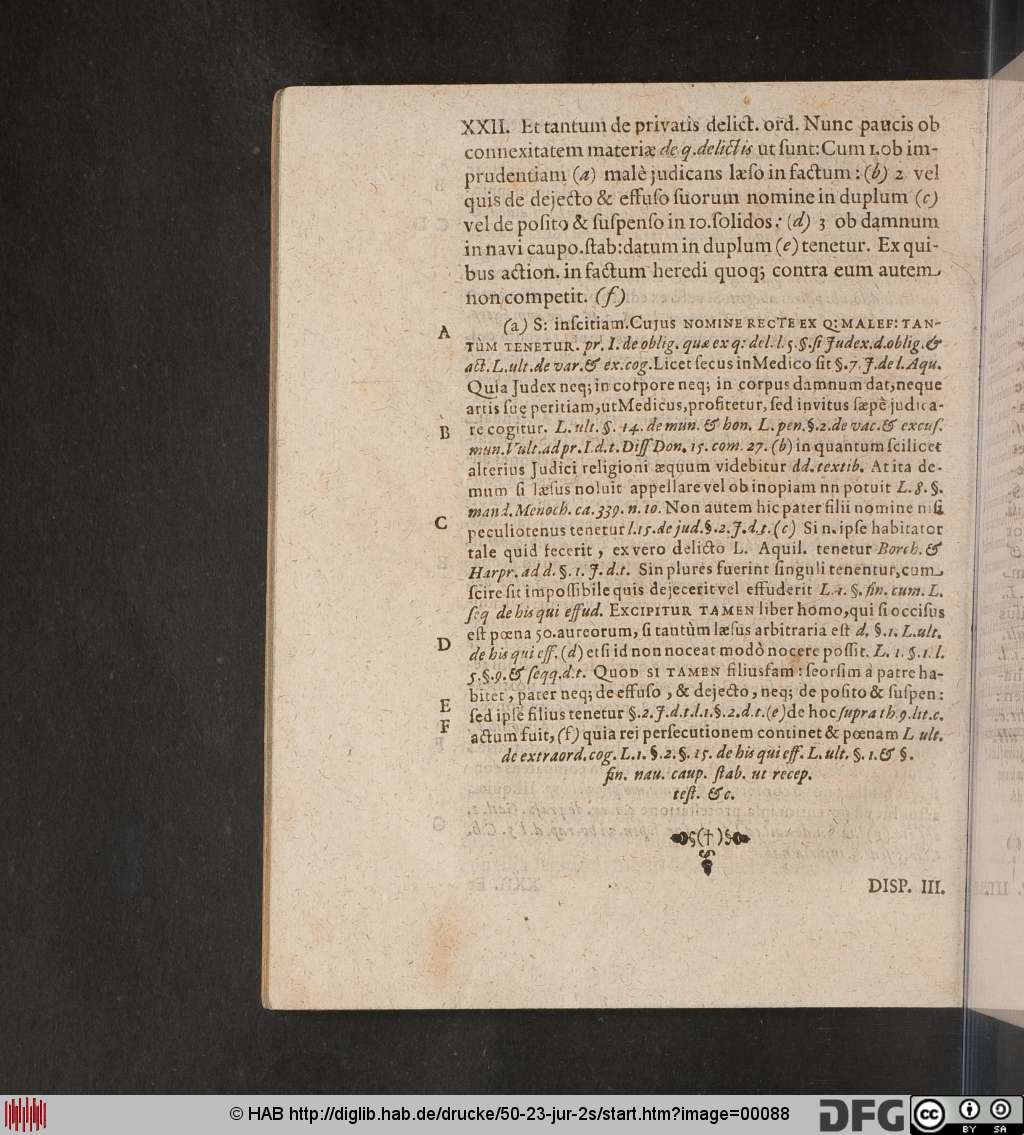 XXII. Et tantum de privatis delict. ord. Nunc paucis ob
connexitatem materiæ de q. delictis ut sunt: Cum 1. ob im-
prudentiam (a) malè judicans læso in factum: (b) 2 vel
quis de dejecto & effuso suorum nomine in duplum (c)
vel de posito & suspenso in 10. solidos: (d) 3 ob damnum
in navi caupo. stab: datum in duplum (e) tenetur. Ex qui-
bus action. in factum heredi quoq; contra eum autem
non competit. (f)
A (a) S: inscitiam. Cujus NOMINE RECTE EX Q: MALEF: TAN-
TÙM TENETUR. pr. I. de oblig. quæ ex q: del. l. 5. §. si Judex. d. oblig. &
act. L. ult. de var. & ex. cog. Licet secus in Medico sit §. 7. J. de l. Aqu.
Quia Judex neq; in corpore neq; in corpus damnum dat, neque
artis suę peritiam, ut Medicus, profitetur, sed invitus sæpè judica-
B re cogitur. L. ult. §. 14. de mun. & hon. L. pen. §. 2. de vac. & excus.
mun. Vult. ad pr. I. d. t. Diss Don. 15. com. 27. (b) in quantum scilicet
alterius Judici religioni æquum videbitur dd. textib. At ita de-
mum si læsus noluit appellare vel ob inopiam nn potuit L. 8. §.
mand. Menoch. ca. 339. n. 10. Non autem hic pater filii nomine nisi
C peculiotenus tenetur l. 15. de jud. §. 2. J. d. t. (c) Si n. ipse habitator
tale quid fecerit, ex vero delicto L. Aquil. tenetur Borch. &
Harpr. ad d. §. 1. J. d. t. Sin plures fuerint singuli tenentur, cum
scire sit impossibile quis dejecerit vel effuderit L. 1. §. fin. cum. L.
seq de his qui effud. EXCIPITUR TAMEN liber homo, qui si occisus
est pœna 50. aureorum, si tantùm læsus arbitraria est d. §. 1. L. ult.
D de his qui eff. (d) etsi id non noceat modò nocere possit. L. 1. §. 1. l.
5. §. 9. & seqq. d. t. QUOD SI TAMEN filiusfam: seorsim à patre ha-
bitet, pater neq; de effuso, & dejecto, neq; de posito & suspen:
E sed ipse filius tenetur §. 2. J. d. t. l. 1. §. 2. d. t. (e) de hoc supra th. 9. lit. c.
F actum fuit, (f) quia rei persecutionem continet & pœnam L ult.
de extraord. cog. L. 1. §. 2. §. 15. de his qui eff. L. ult. §. 1. & §.
fin. nau. caup. stab. ut recep.
test. &c.
DISP. III.
© HAB http://diglib.hab.de/drucke/50-23-jur-2s/start.htm?image=00088
DFG cc BY SA